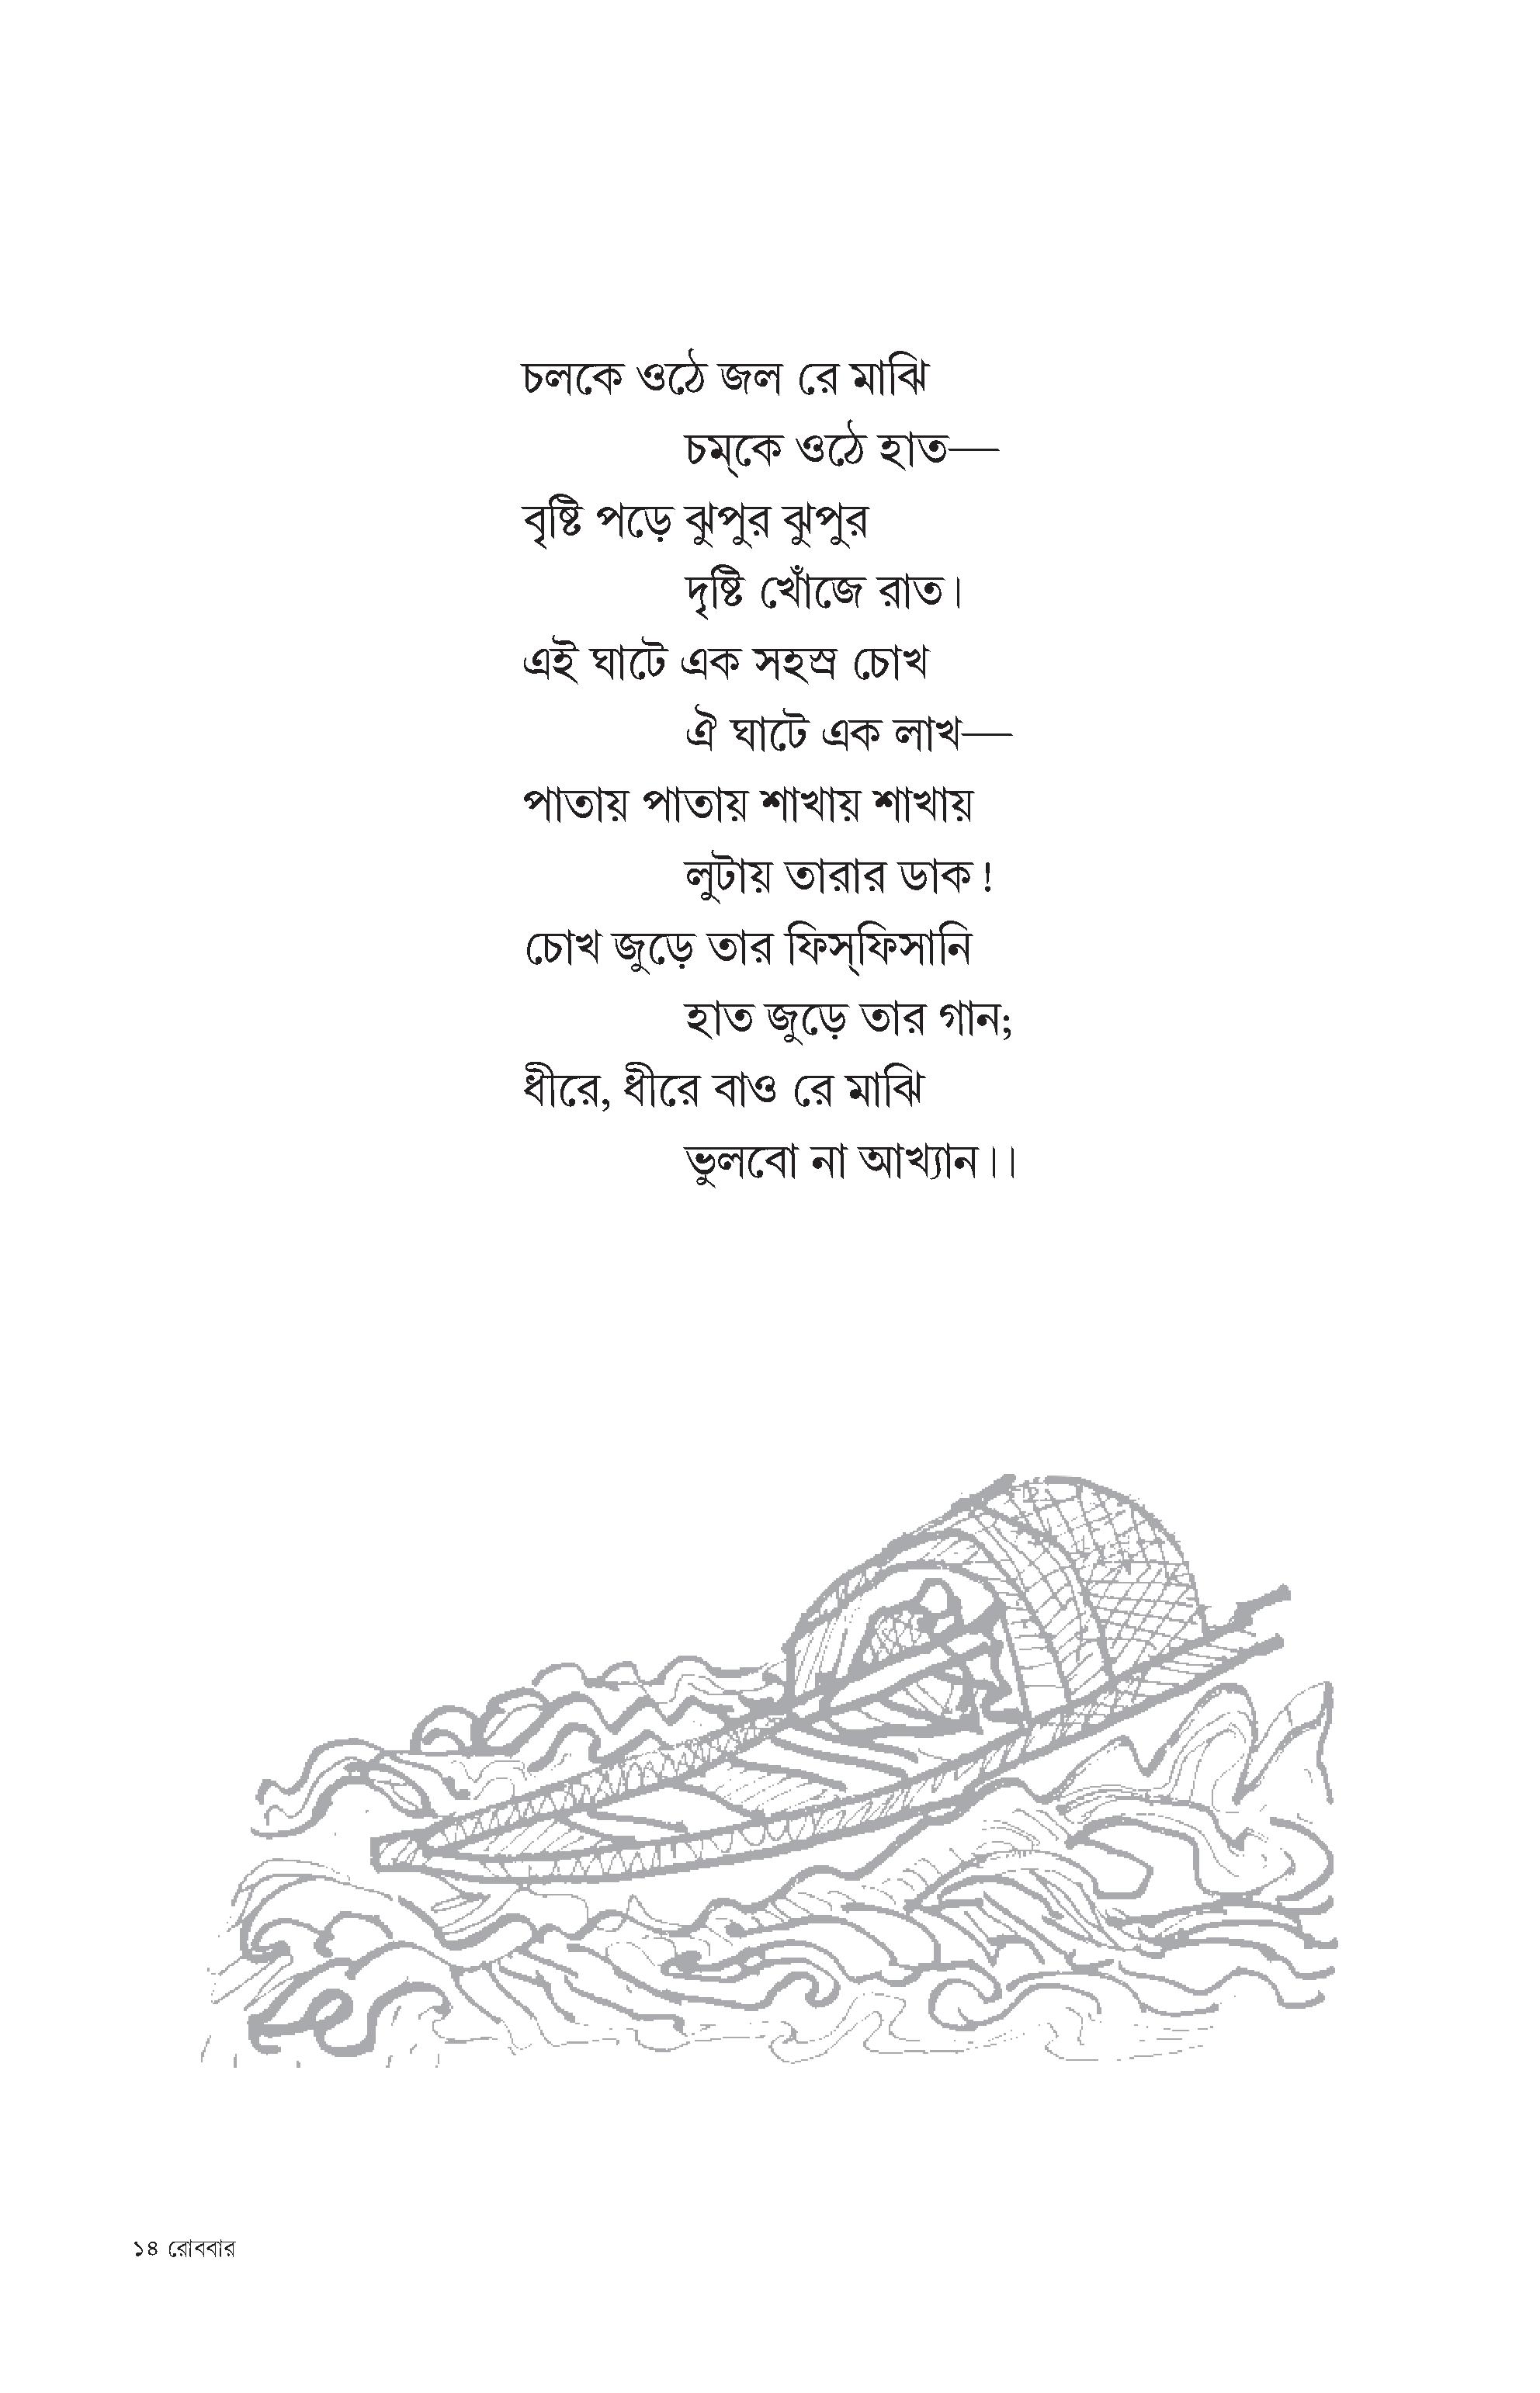 চলকে ওঠে জল রে মাঝি
চম্‌কে ওঠে হাত—
বৃষ্টি পড়ে ঝুপুর ঝুপুর
দৃষ্টি খোঁজে রাত।
এই ঘাটে এক সহস্র চোখ
ঐ ঘাটে এক লাখ—
পাতায় পাতায় শাখায় শাখায়
লুটায় তারার ডাক!
চোখ জুড়ে তার ফিস্‌ফিসানি
হাত জুড়ে তার গান;
ধীরে, ধীরে বাও রে মাঝি
ভুলবো না আখ্যান।।
১৪ রোববার